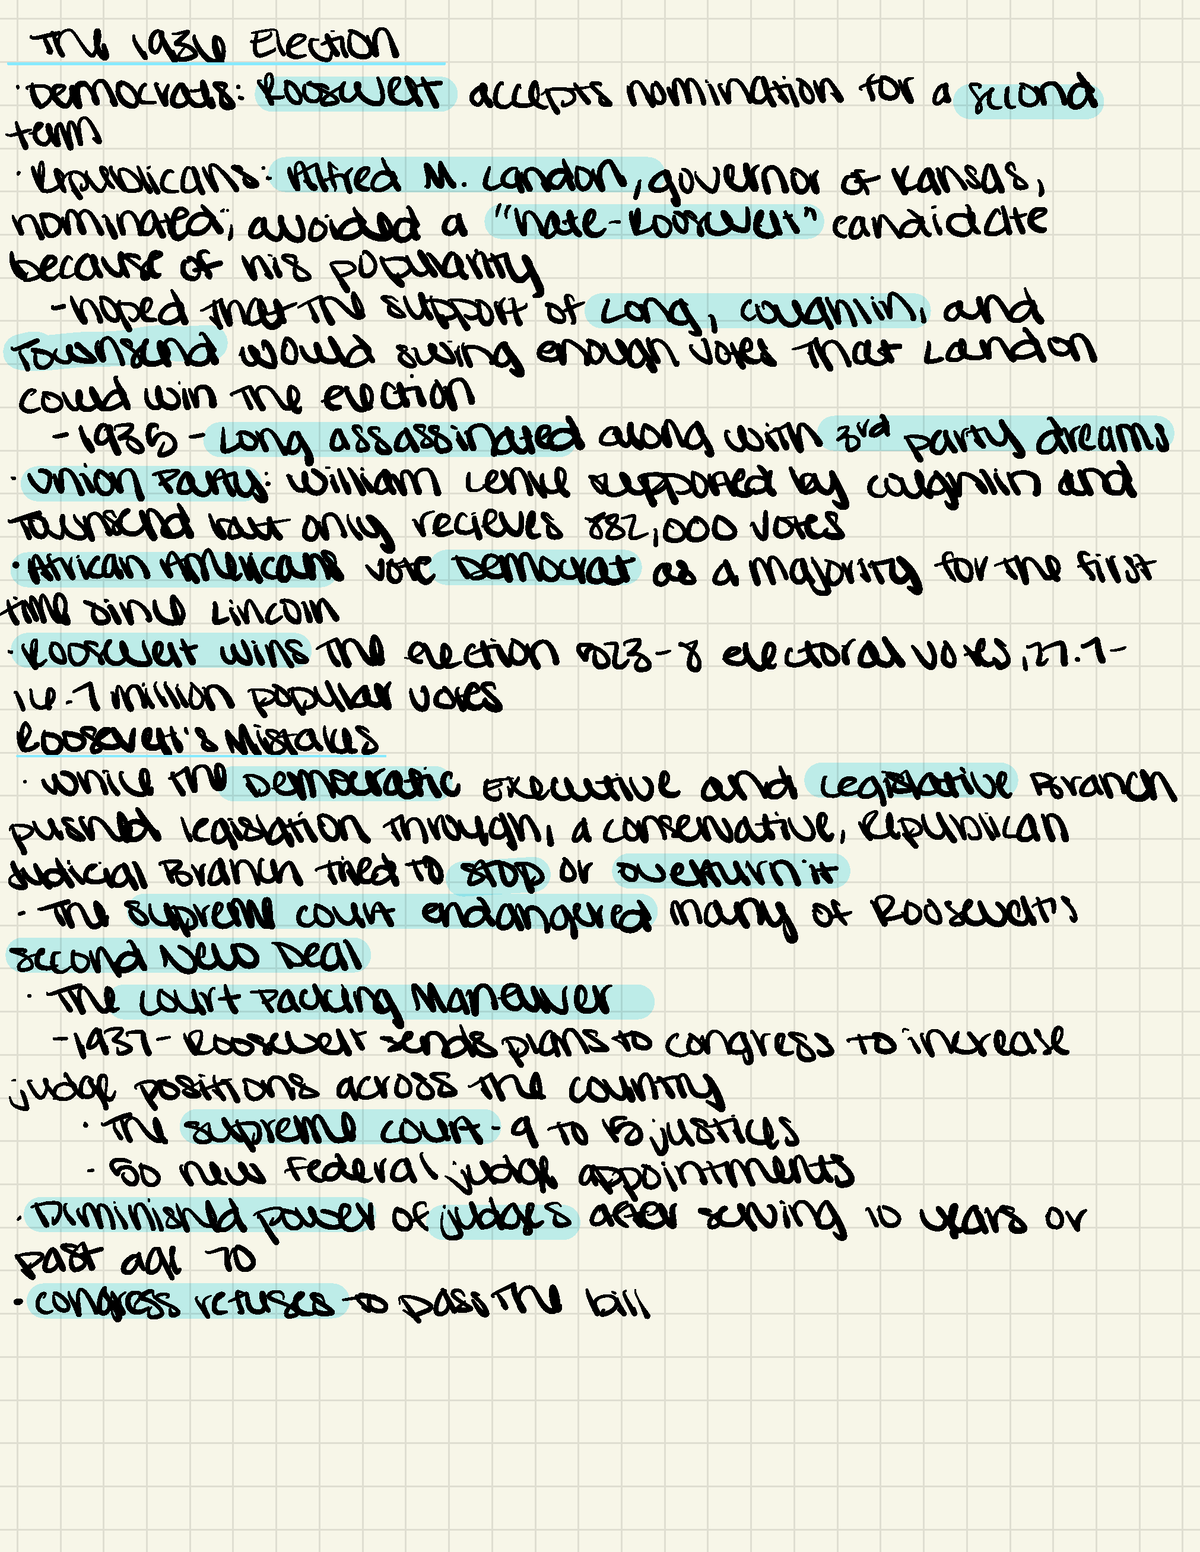 The 1936 Election
· Democrats: Roosevelt accepts nomination for a second
term
· Republicans: Alfred M. Landon, governor of Kansas,
nominated; avoided a "hate-Roosevelt" candidate
because of his popularity
- hoped that the support of Long, Coughlin, and
Townsend would swing enough votes that Landon
could win the election
- 1935 - Long assassinated along with 3rd party dreams
· Union Party: William Lemke supported by Coughlin and
Townsend but only recieves 882,000 votes
· African Americans vote Democrat as a majority for the first
time since Lincoln
· Roosevelt wins the election 523-8 electoral votes, 27.7-
16.7 million popular votes
Roosevelt's Mistakes
· While the Democratic Executive and Legislative Branch
pushed legislation through, a conservative, Republican
Judicial Branch tried to stop or overturn it
· The Supreme Court endangered many of Roosevelt's
second New Deal
· The Court Packing Maneuver
- 1937 - Roosevelt sends plans to congress to increase
judge positions across the country
· The Supreme Court - 9 to 15 justices
· 50 new Federal judge appointments
· Diminished power of judges after serving 10 years or
past age 70
· Congress refuses to pass the bill